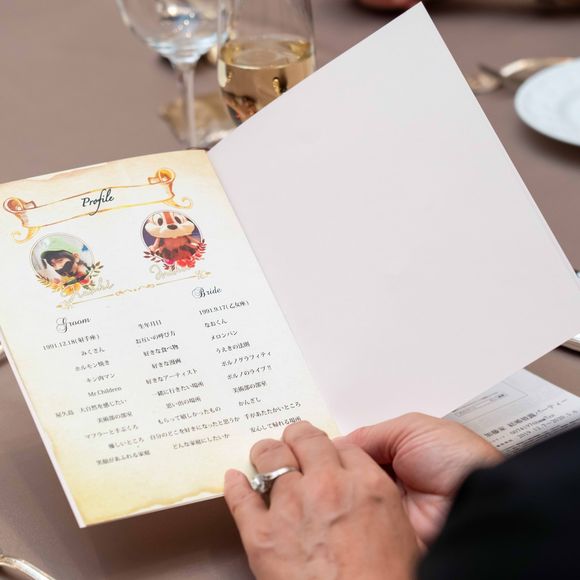 Profile
Groom
Bride
1991.12.18(射手座) 生年月日 1991.9.17(乙女座)
みくさん お互いの呼び方 なおくん
ホルモン焼き 好きな食べ物 メロンパン
キン肉マン 好きな漫画 うえきの法則
Mr.Children 好きなアーティスト ポルノグラフィティ
屋久島 大自然を感じたい 一緒に行きたい場所 ポルノのライブ!!
美術部の部室 思い出の場所 美術部の部室
マフラーと手ぶくろ もらって嬉しかったもの かんざし
優しいところ 自分のどこを好きになったと思うか 手があたたかいところ
笑顔があふれる家庭 どんな家庭にしたいか 安心して帰れる場所